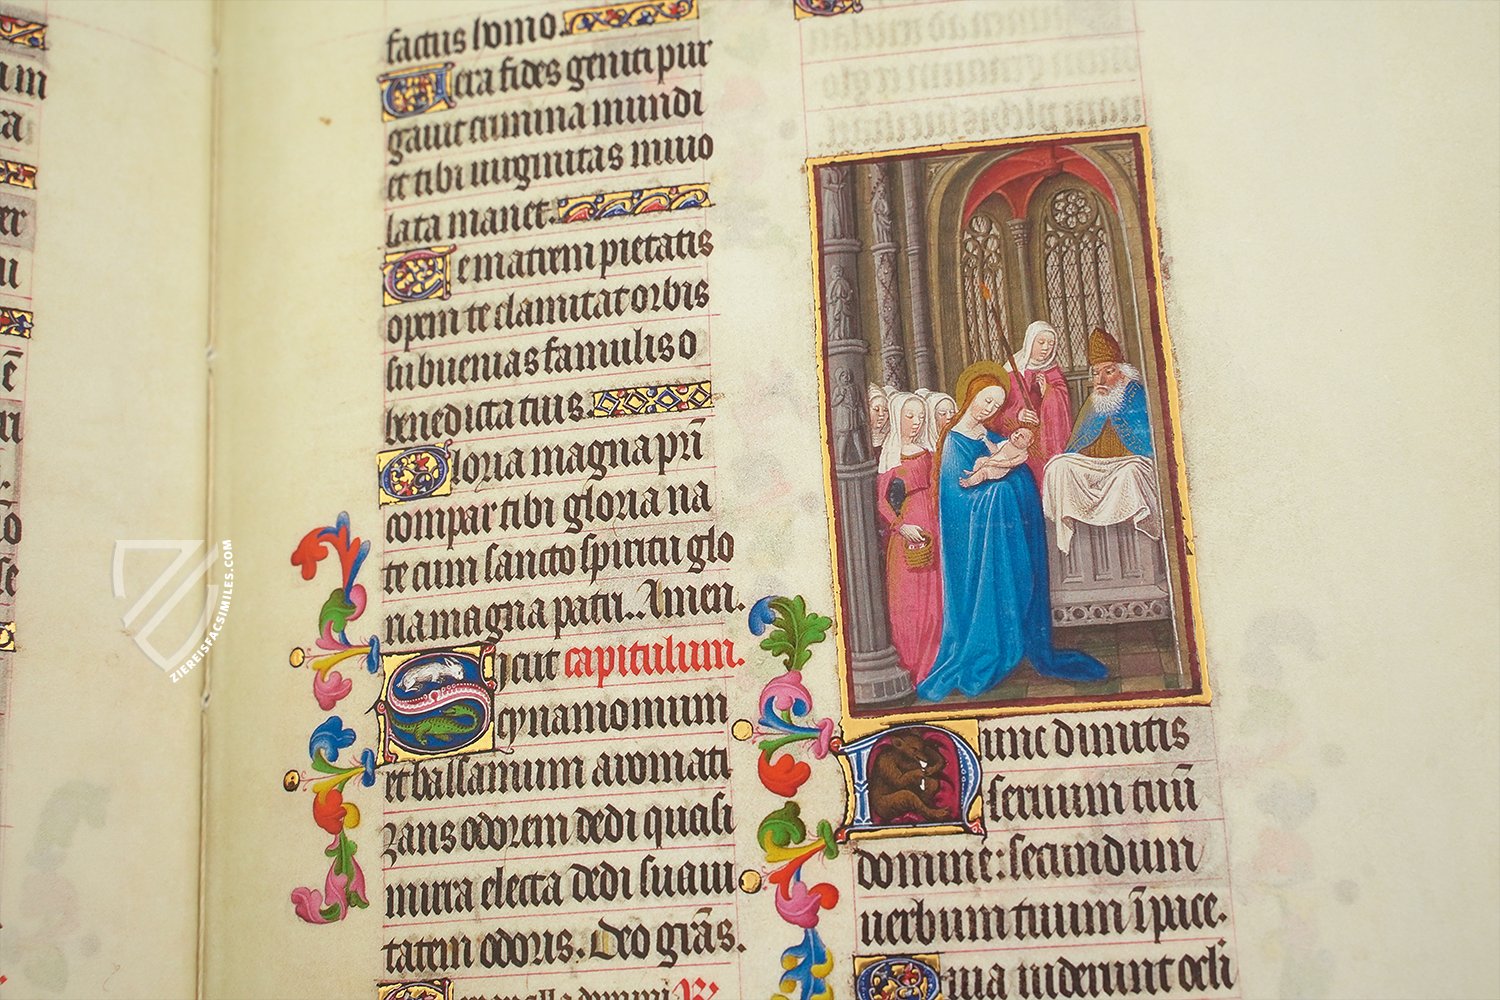 factus homo.
Vera fides geniti pur
gauit crimina mundi
et tibi uirginitas inuio
lata manet.
Te matrem pietatis
opem te clamitat orbis
subuenias famulis o
benedicta tuis.
Gloria magna pr̄i
compar tibi gloria na
te cum sancto spiritu glo
ria magna patri. Amen.
Sicut capitulum.
cynamomum
et balsamum aromati
zans odorem dedi quasi
mirra electa dedi suaui
tatem odoris. Deo gr̄as.
Nunc dimittis
seruum tuū
domine: secundum
uerbum tuum ī pace.
Quia uiderunt ocl̄i
ZIEREISFACSIMILES.COM